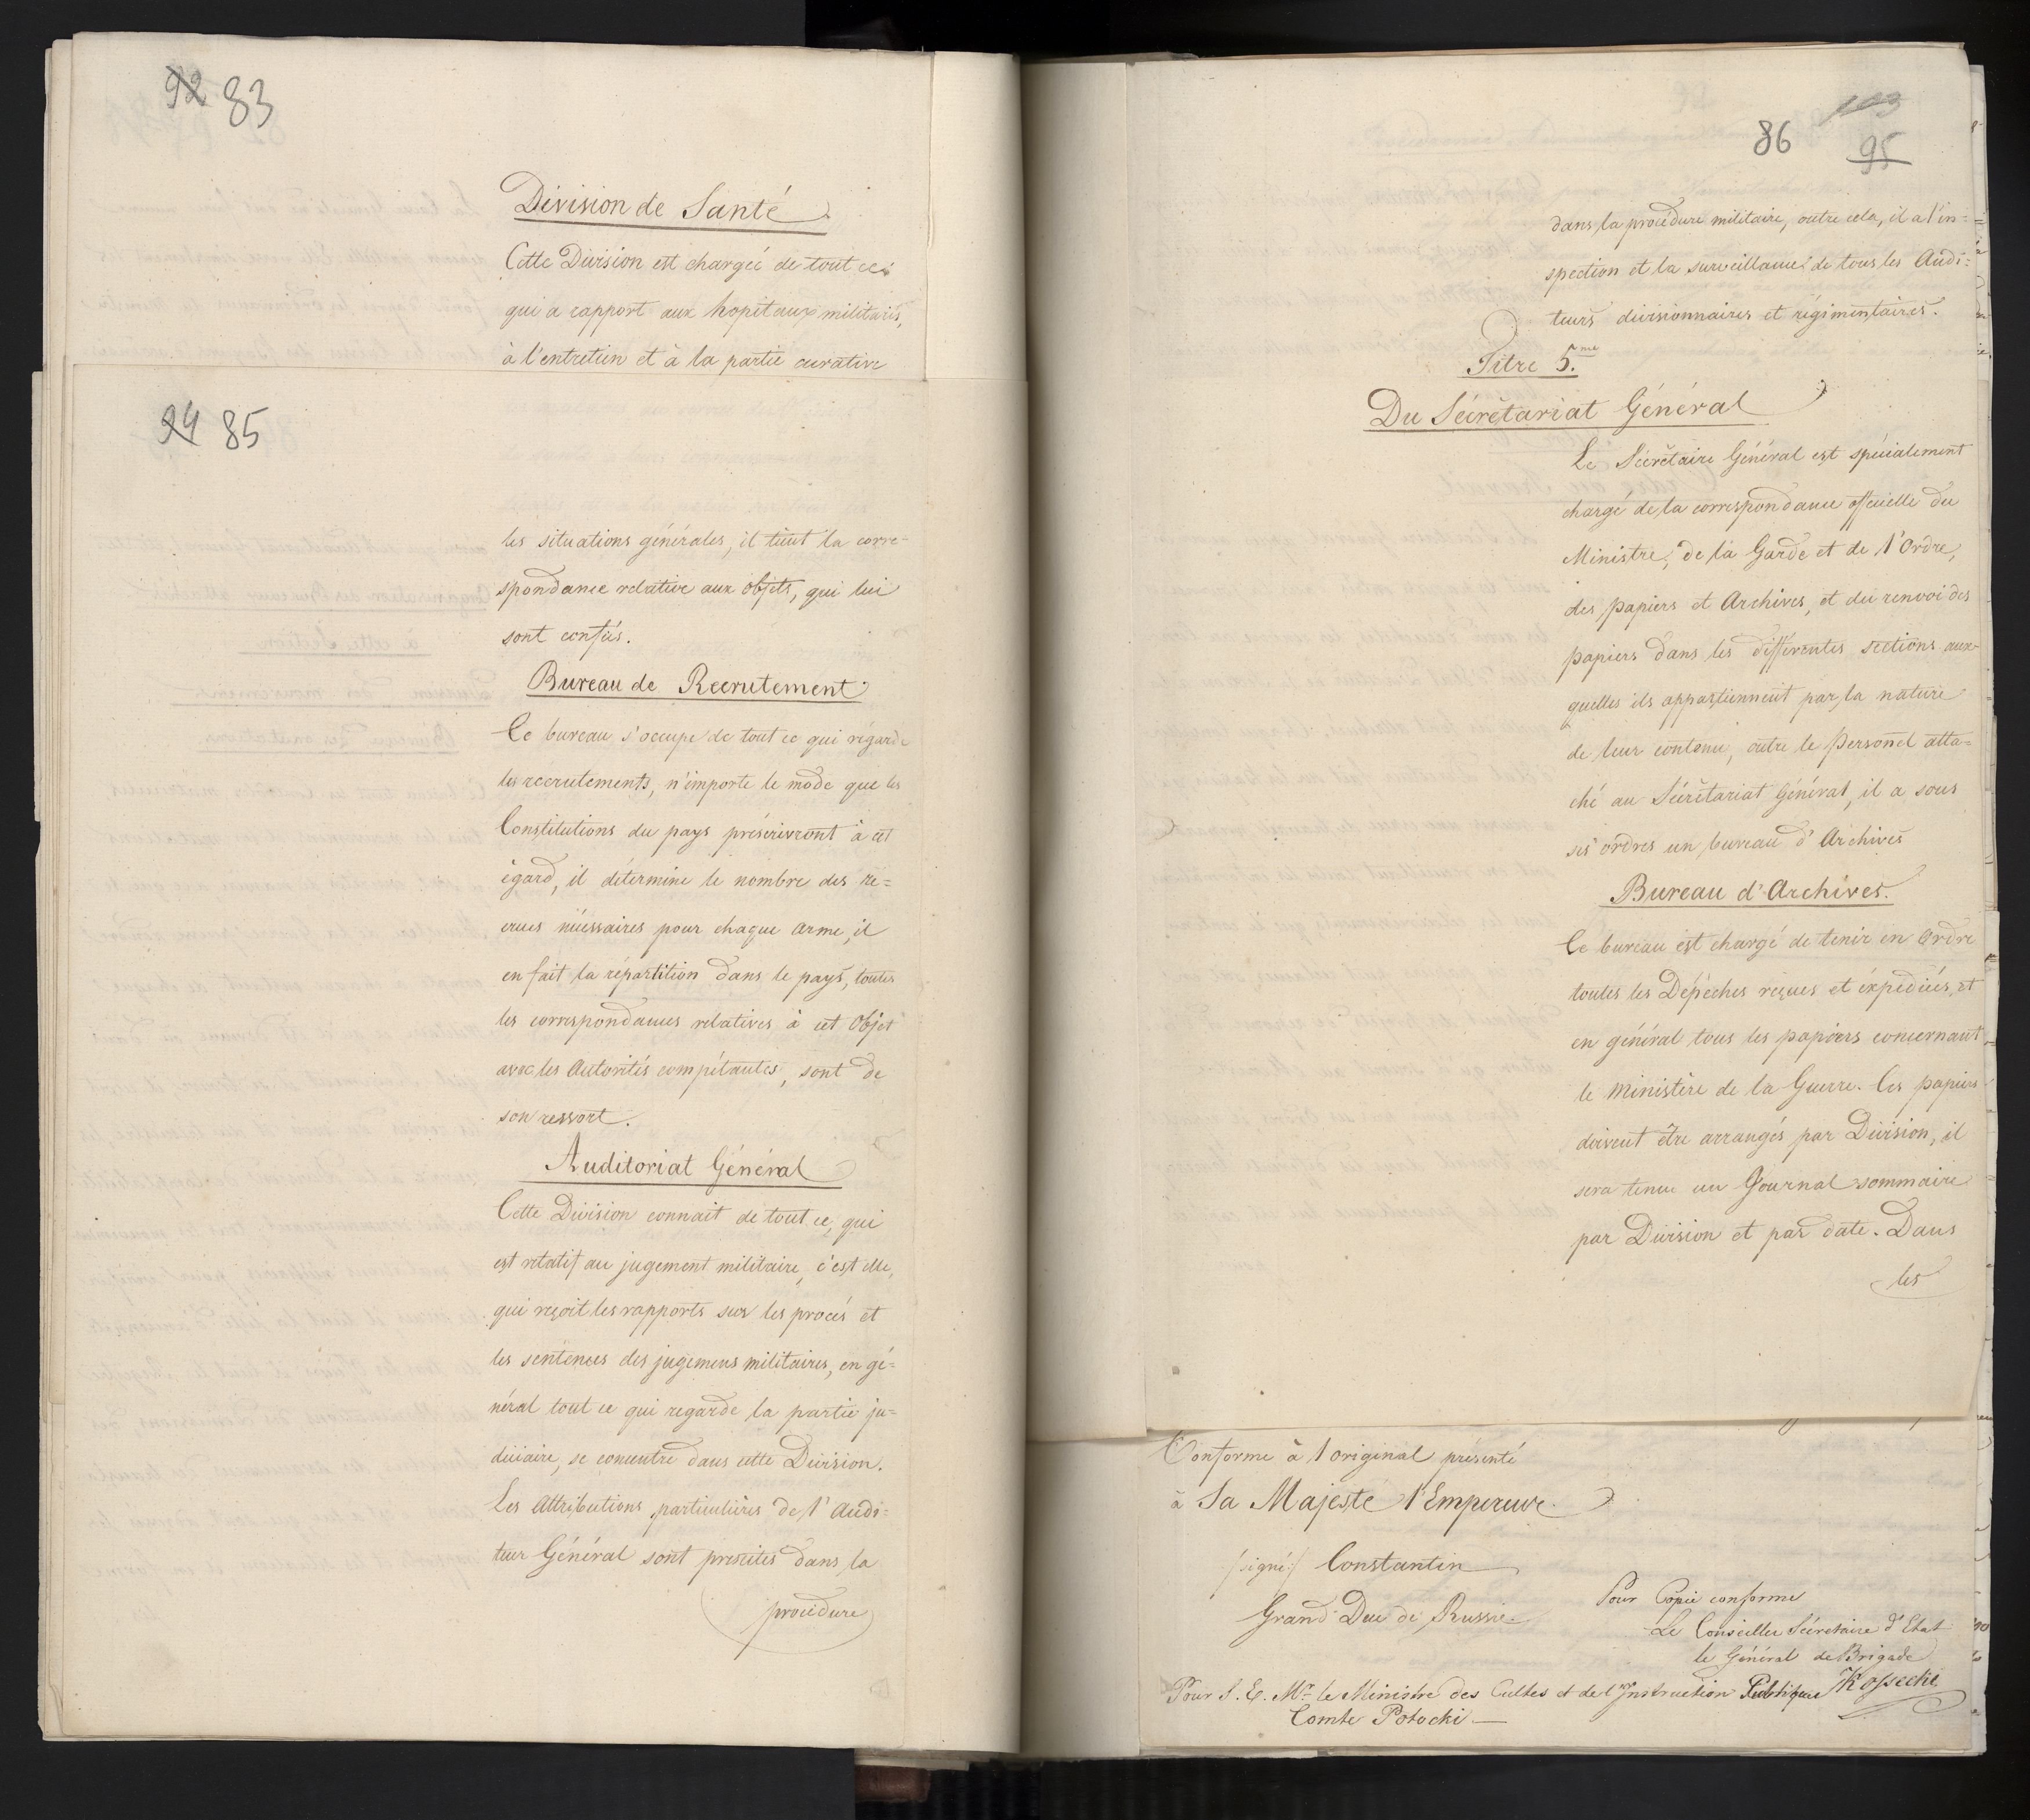 92 83
Division de Santé
Cette Division est chargée de tout ce
qui a rapport aux hopitaux militaires,
à l'entretien et à la partie curative
94 85
les situations générales, il tient la corre-
spondance relative aux objets, qui lui
sont confiés.
Bureau de Recrutement
Ce bureau s'occupe de tout ce qui régarde
les recrutements, n'importe le mode que les
Constitutions du pays préscrivront à cet
égard, il détermine le nombre des re=
crues nécessaires pour chaque arme, il
en fait la répartition dans le pays, toutes
les correspondances relatives à cet objet
avec les Autorités compétantes, sont de
son ressort.
Auditoriat Général
Cette Division connait de tout ce, qui
est rélatif au jugement militaire, c'est elle,
qui reçoit les rapports sur les procés et
les sentences des jugemens militaires, en gé=
néral tout ce qui regarde la partie ju=
diciaire, se concentre dans cette Division.
Les Attributions particulières de l'Audi=
teur Général sont prescrites dans la
procédure
103
86 95
dans la procédure militaire, outre cela, il a l'in=
spection et la surveillance de tous les Audi=
teurs divisionnaires et régimentaires.
Titre 5.me
Du Sécrétariat Général
Le Sécrétaire Général est spécialement
chargé de la correspondance officielle du
Ministre, de la Garde et de l'Ordre,
des papiers et Archives, et du renvoi des
papiers dans les différentes sections aux-
quelles ils appartiennent par la nature
de leur contenu, outre le Personel atta=
ché au Sécrétariat Général, il a sous
ses ordres un bureau d'Archives
Bureau d'Archives.
Ce bureau est chargé de tenir en Ordre
toutes les Dépêches reçues et éxpediées, et
en général tous les papiers concernant
le Ministère de la Guerre. Ces papiers
doivent être arrangés par Division, il
sera tenu un Journal sommaire
par Division et par date. Dans
les
Conforme à l'original présenté
à Sa Majesté l'Empereur.
/signé:/ Constantin
Grand Duc de Russie.
Pour Copie conforme
Le Conseiller Sécretaire d'Etat
le Général de Brigade
Kossecki
Pour S. E. Mr le Ministre des Cultes et de l'Instruction Publique
Comte Potocki